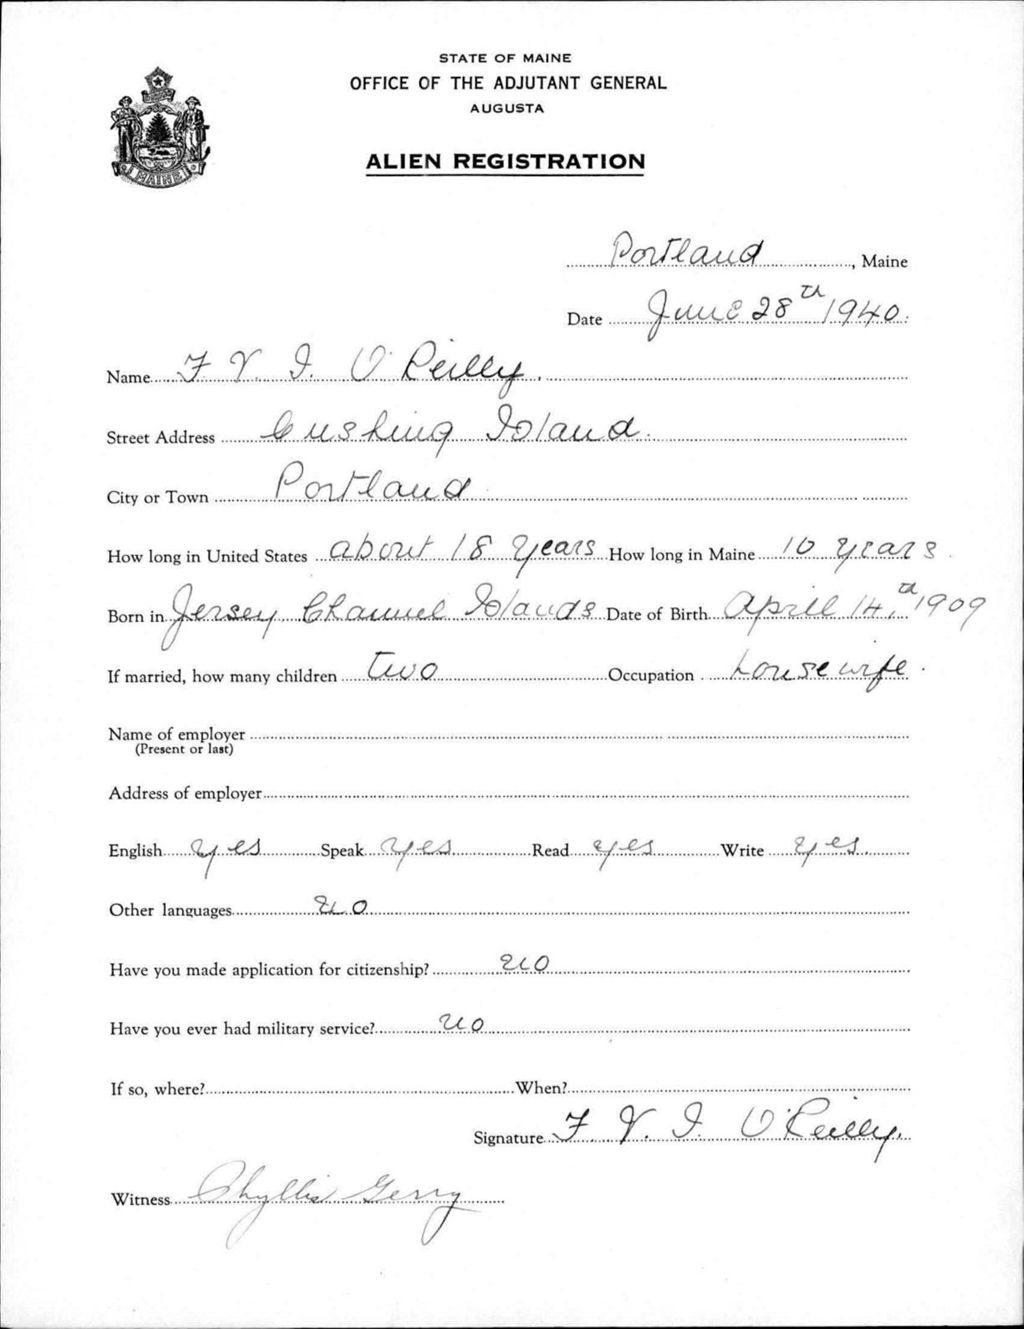 STATE OF MAINE
OFFICE OF THE ADJUTANT GENERAL
AUGUSTA
ALIEN REGISTRATION
MAINE
Portland, Maine
Date June 28th 1940.
Name F V. I. O'Reilly.
Street Address Cushing Island.
City or Town Portland
How long in United States about 18 Years How long in Maine 10 years.
Born in Jersey Channel Islands Date of Birth April 14,th 1909
If married, how many children two Occupation housewife.
Name of employer
(Present or last)
Address of employer
English yes Speak yes Read yes Write yes.
Other languages no
Have you made application for citizenship? no
Have you ever had military service? no
If so, where? When?
Signature F V. I. O'Reilly.
Witness Phyllis Gerry